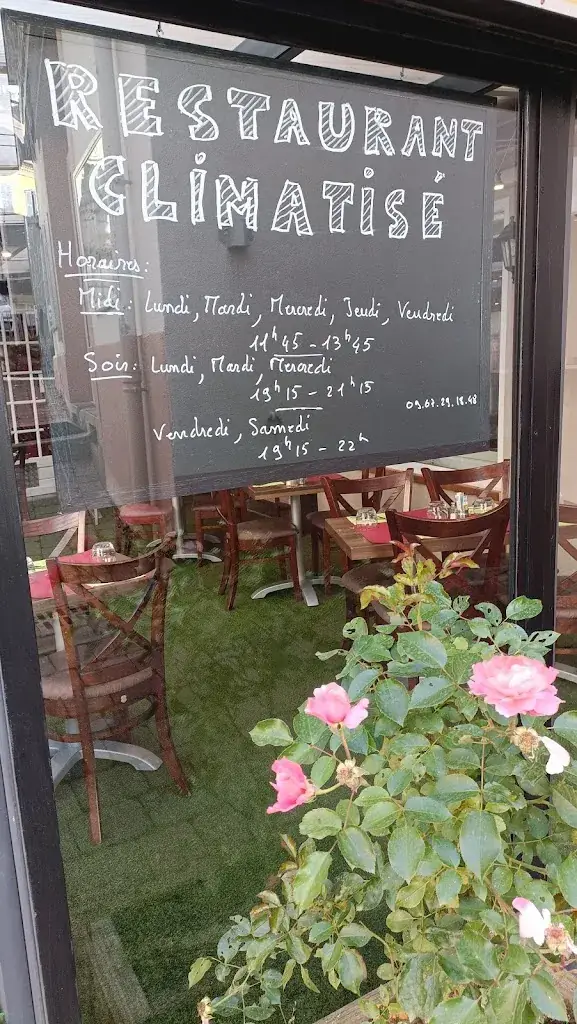 RESTAURANT
CLIMATISÉ
Horaires:
Midi: Lundi, Mardi, Mercredi, Jeudi, Vendredi
11h45 - 13h45
Soir: Lundi, Mardi, Mercredi
19h15 - 21h15
09.67.29.18.48
Vendredi, Samedi
19h15 - 22h